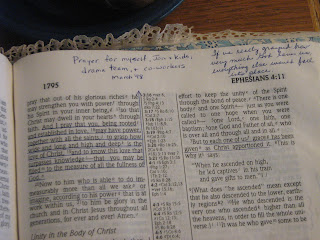 Prayer for myself, Jim & kids,
drama team, & coworkers
March 98
If we really grasped how
very much God loves us,
everything else would fall
into place.
1795
EPHESIANS 4:11
pray that out of his glorious riches he may
strengthen you with power through
his Spirit in your inner being, so that
Christ may dwell in your hearts through
faith. And I pray that you, being rooted
and established in love, may have power,
together with all the saints, to grasp how
wide and long and high and deep is the
love of Christ, and to know this love that
surpasses knowledge—that you may be
filled to the measure of all the fullness of
God.
Now to him who is able to do im-
measurably more than all we ask or
imagine, according to his power that is
at work within us, to him be glory in the
church and in Christ Jesus throughout all
generations, for ever and ever! Amen.
Unity in the Body of Christ
effort to keep the unity of the Spirit
through the bond of peace. There is one
body and one Spirit—just as you were
called to one hope when you were
called—one Lord, one faith, one
baptism; one God and Father of all, who
is over all and through all and in all.
But to each one of us grace has been
given as Christ apportioned it. This is
why it says:
"When he ascended on high,
he led captives in his train
and gave gifts to men."
(What does "he ascended" mean except
that he also descended to the lower, earth-
ly regions? He who descended is the
very one who ascended higher than all
the heavens, in order to fill the whole uni-
verse.) It was he who gave some to be